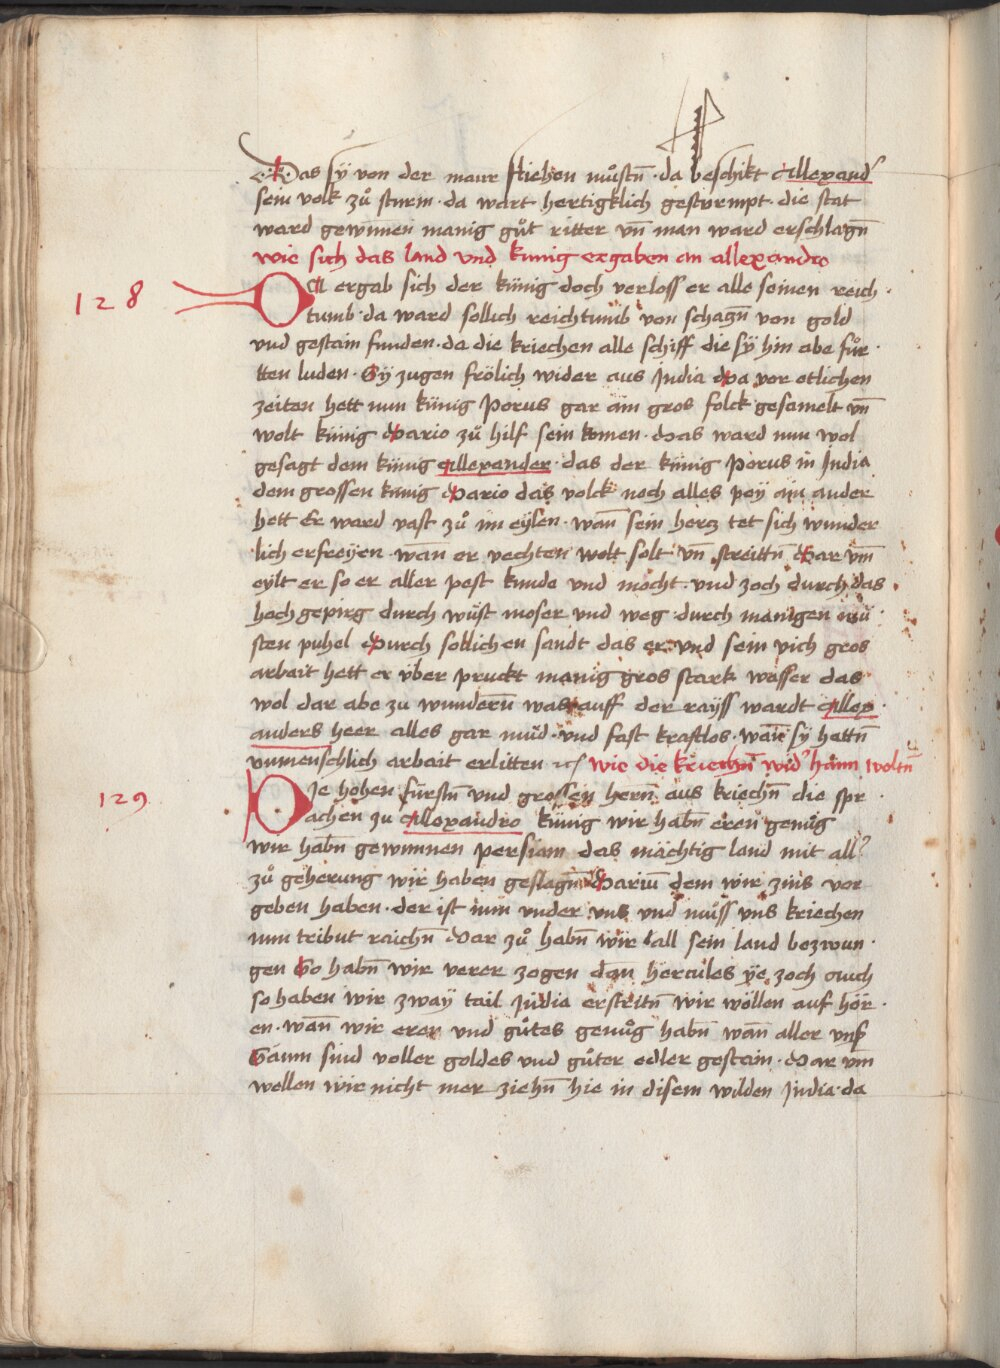 Das sÿ von der maur fliehen můstn̄ · da beschikt Allexand᾽
sein volk zů sturm · da wart hertigklich gesturmpt · die stat
ward gewūnen manig gůt ritter vn̄ man ward erschlagn̄
wie sich das land vnd kunig ergaben an allexandro
128 DA ergab sich der künig doch verloss er alle seinen reich ·
tumb · da ward sollich reichtumb von schagn̄ von gold
vnd gestain funden · da die kriechen alle schiff die sÿ hin abe fůr ·
tten luden · Sÿ zugen frölich wider aus India Da vor etlichen
zeiten hett nun künig Porus gar ain gros folck gesamelt vn̄
wolt künig Dario zů hilf sein komen · Das ward nun wol
gesagt dem künig Allexander · das der künig Porus in India
dem grossen künig Dario das volck noch alles peÿ ain ander
hett Er ward vast zů im eylen · wan̄ sein hercz tet sich wunder
lich erfreÿen · wan̄ er vechten wolt solt vn̄ streittn̄ Dar vm̄
eylt er so er aller pest kunde vnd mocht · vnd zoch durch das
hoch gepirg durch wüst moser vnd weg · durch manigen wü ·
sten puhel Durch sollichen sandt das er vnd sein vich gros
arbait hett er über pruckt manig gros stark wasser das
wol dar abe zu wundern̄ was auff der raÿss wardt Allex ·
anders heer alles gar müd · vnd fast kraftlos · wan̄ sÿ hettn̄
vnmenschlich arbait erlitten ·⁊c· wie die kriechn̄ wid᾽ haim woltn̄
129 DIe hohen fürstn̄ vnd grossen hern̄ aus kriechn̄ die spr ·
achen zu Allexandro künig wir habn̄ eren genůg
wir habn̄ gewunnen persiam das mächtig land mit all᾽
zů geherung wir haben geslagn̄ Dariū dem wir zins vor
geben haben · der ist nun vnder vns vnd můss vns kriechen
nun tribut raichn̄ Dar zů habn̄ wir all sein land bezwun ·
gen So habn̄ wir verer zogen dan̄ hercules ÿe zoch auch
so haben wir zwaÿ tail India erstritn̄ wir wöllen auf hör ·
en · wan̄ wir erer vnd gůtes genůg habn̄ wan̄ aller vnß
Sāum sind voller goldes vnd gůter edler gestain · Dar vm̄
wellen wir nicht mer ziehn̄ hie in disem wilden India · da